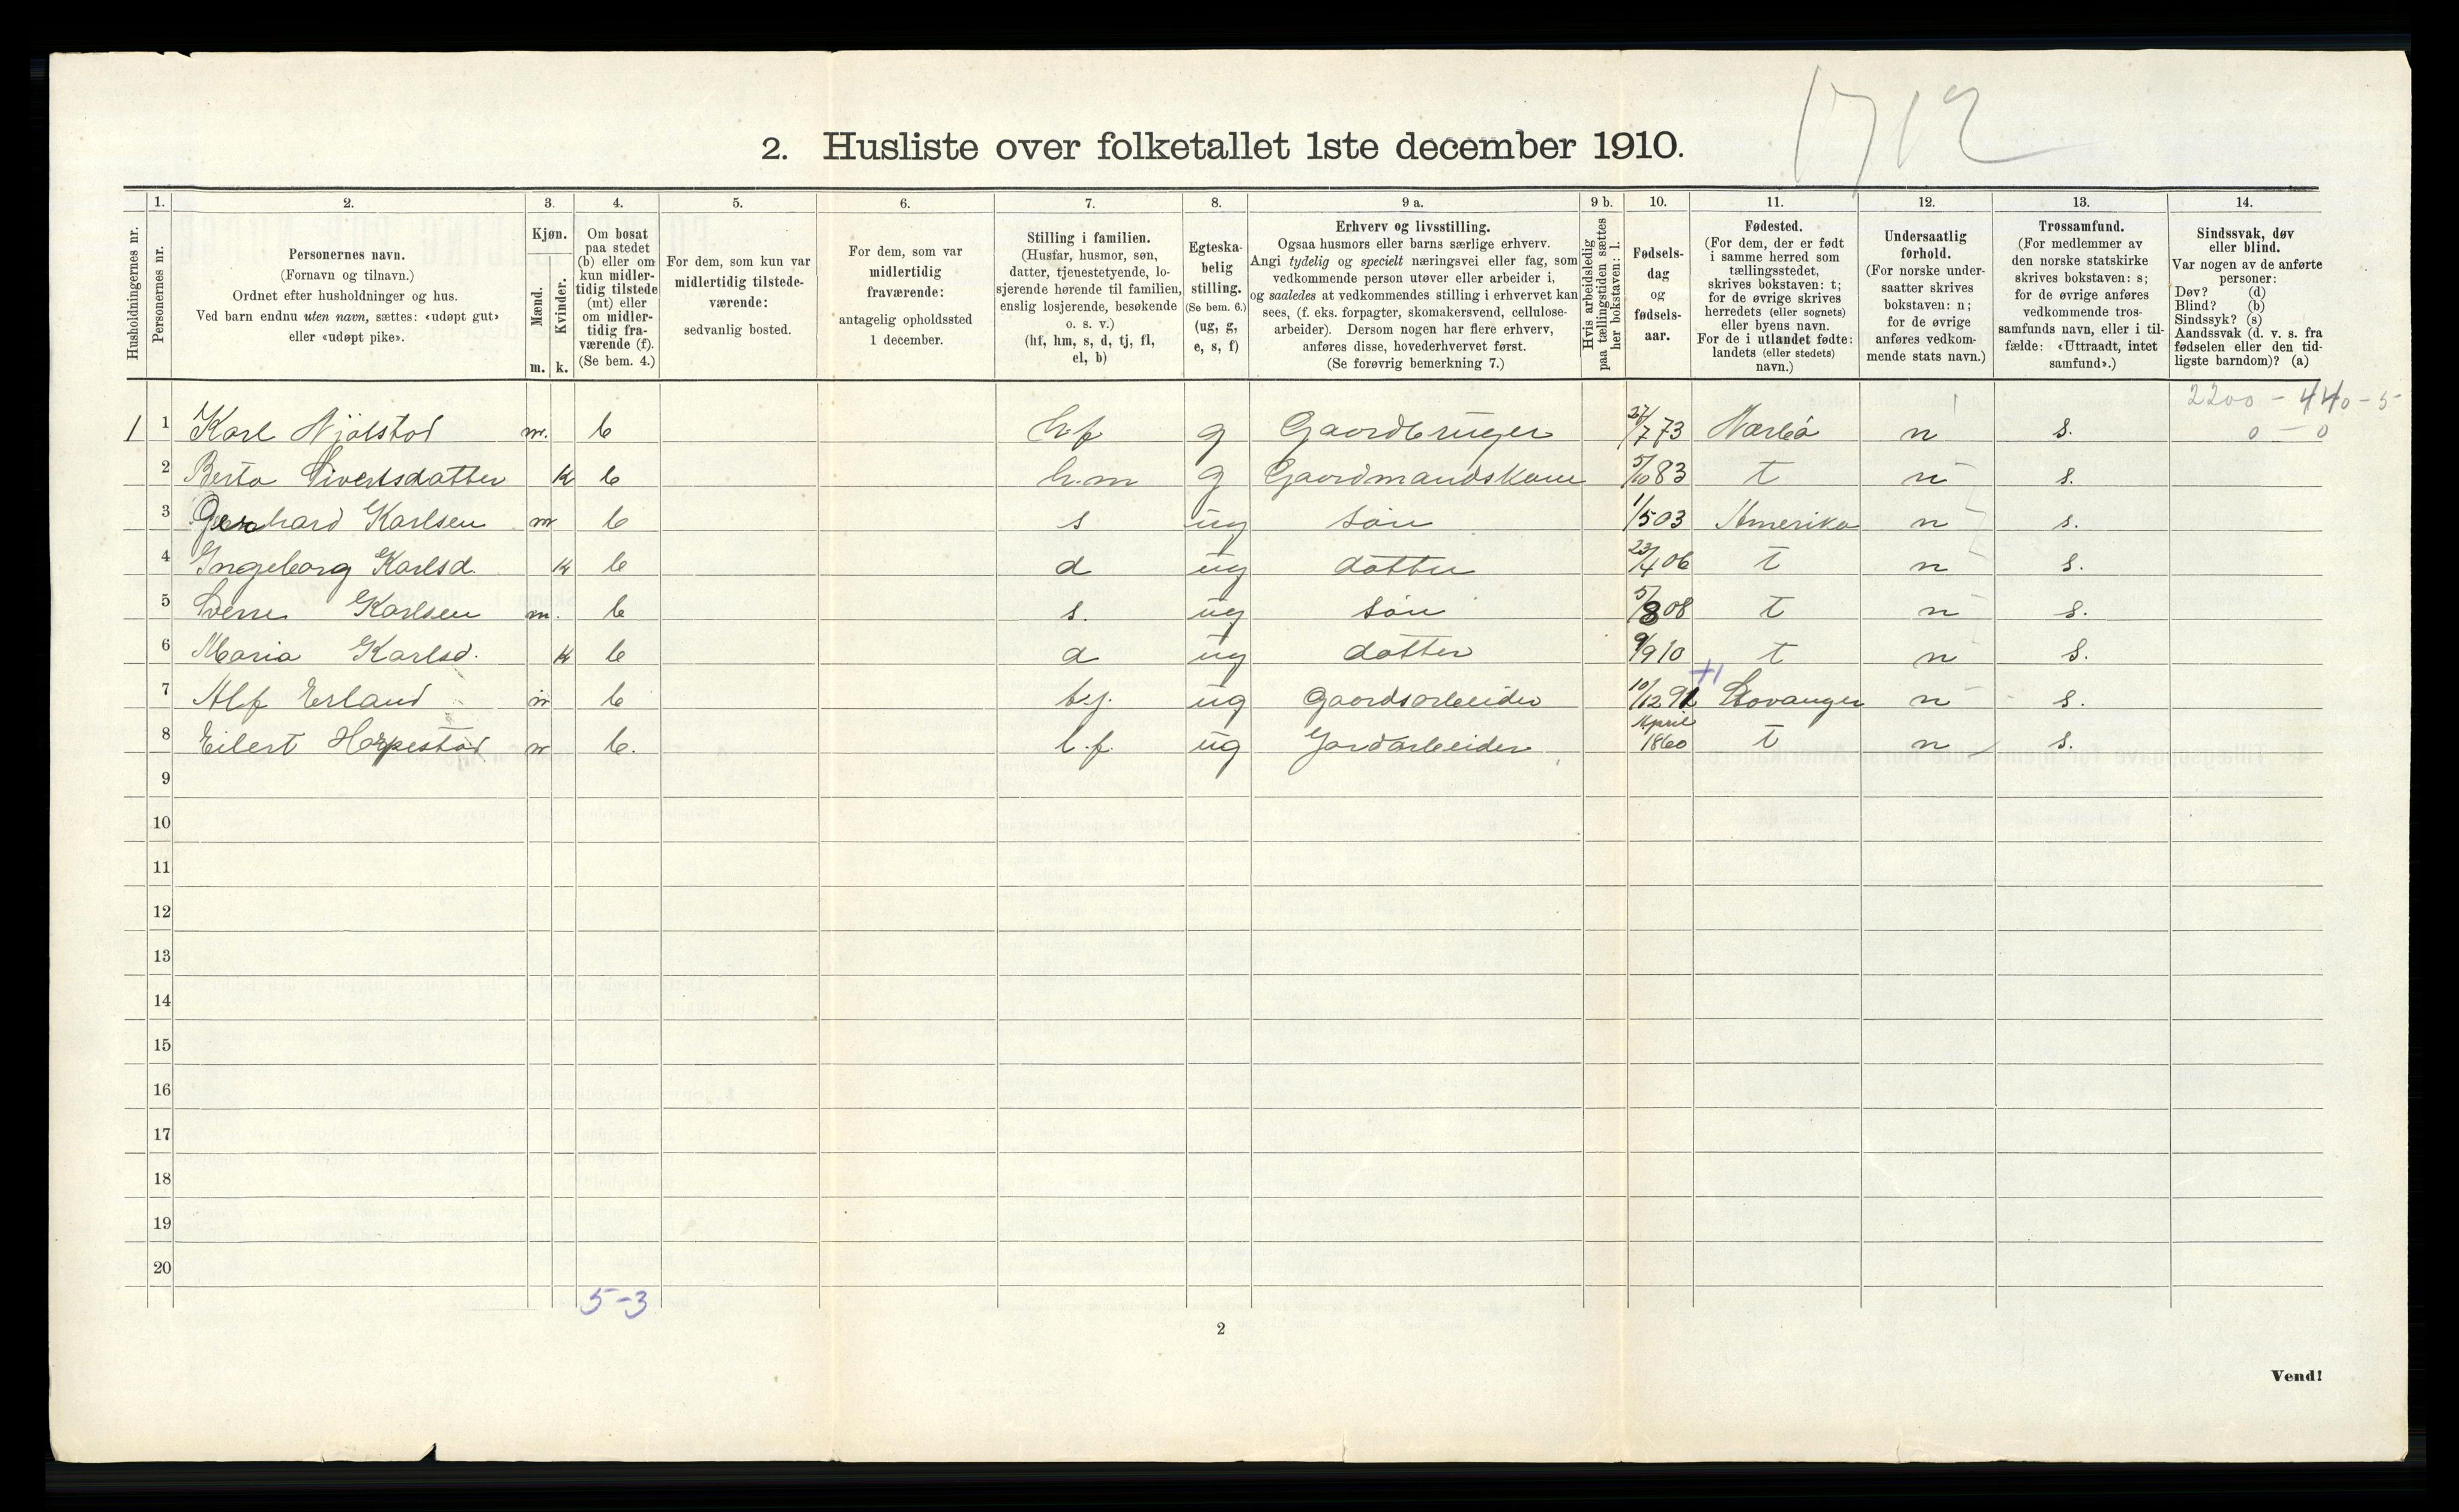 1712
2. Husliste over folketallet 1ste december 1910.
Husholdningernes nr.
1.
Personernes nr.
2.
Personernes navn.
(Fornavn og tilnavn.)
Ordnet efter husholdninger og hus.
Ved barn endnu uten navn, sættes: «udøpt gut»
eller «udøpt pike».
3.
Kjøn.
Mænd.
Kvinder.
m. k.
4.
Om bosat
paa stedet
(b) eller om
kun midler-
tidig tilstede
(mt) eller
om midler-
tidig fra-
værende (f).
(Se bem. 4.)
5.
For dem, som kun var
midlertidig tilstede-
værende:
sedvanlig bosted.
6.
For dem, som var
midlertidig
fraværende:
antagelig opholdssted
1 december.
7.
Stilling i familien.
(Husfar, husmor, søn,
datter, tjenestetyende, lo-
sjerende hørende til familien,
enslig losjerende, besøkende
o. s. v.)
(hf, hm, s, d, tj, fl,
el, b)
8.
Egteska-
belig
stilling.
(Se bem. 6.)
(ug, g,
e, s, f)
9 a.
Erhverv og livsstilling.
Ogsaa husmors eller barns særlige erhverv.
Angi tydelig og specielt næringsvei eller fag, som
vedkommende person utøver eller arbeider i,
og saaledes at vedkommendes stilling i erhvervet kan
sees, (f. eks. forpagter, skomakersvend, cellulose-
arbeider). Dersom nogen har flere erhverv,
anføres disse, hovederhvervet først.
(Se forøvrig bemerkning 7.)
9 b.
Hvis arbeidsledig
paa tællingstiden sættes
her bokstaven: l.
10.
Fødsels-
dag
og
fødsels-
aar.
11.
Fødested.
(For dem, der er født
i samme herred som
tællingsstedet,
skrives bokstaven: t;
for de øvrige skrives
herredets (eller sognets)
eller byens navn.
For de i utlandet fødte:
landets (eller stedets)
navn.)
12.
Undersaatlig
forhold.
(For norske under-
saatter skrives
bokstaven: n;
for de øvrige
anføres vedkom-
mende stats navn.)
13.
Trossamfund.
(For medlemmer av
den norske statskirke
skrives bokstaven: s;
for de øvrige anføres
vedkommende tros-
samfunds navn, eller i til-
fælde: «Uttraadt, intet
samfund».)
14.
Sindssvak, døv
eller blind.
Var nogen av de anførte
personer:
Døv? (d)
Blind? (b)
Sindssyk? (s)
Aandssvak (d. v. s. fra
fødselen eller den tid-
ligste barndom)? (a)
2200 - 440 - 5
0 - 0
1 1 Karl Njålstad m. b hf g Gaardbruger 27/7 73 Nærbö n s.
2 Berta Sivertsdatter k b h.m g Gaardmandskone 5/10 83 t n s.
3 Gerhard Karlsen m b s ug sön 1/5 03 Amerika n s.
4 Ingeborg Karlsd. k b d ug datter 23/4 06 t n s.
5 Sverre Karlsen m. b s. ug sön 5/8 08 t n s.
6 Maria Karlsd. k b d ug datter 9/9 10 t n s.
+1
7 Alf Erland m b tj. ug Gaardsarbeider 10/12 91 Stavanger n s.
8 Eilert Harpestad m b. l.f. ug Gardarbeider April 1860 t n s.
9
10
11
12
13
14
15
16
17
18
19
20
5-3
2
Vend!